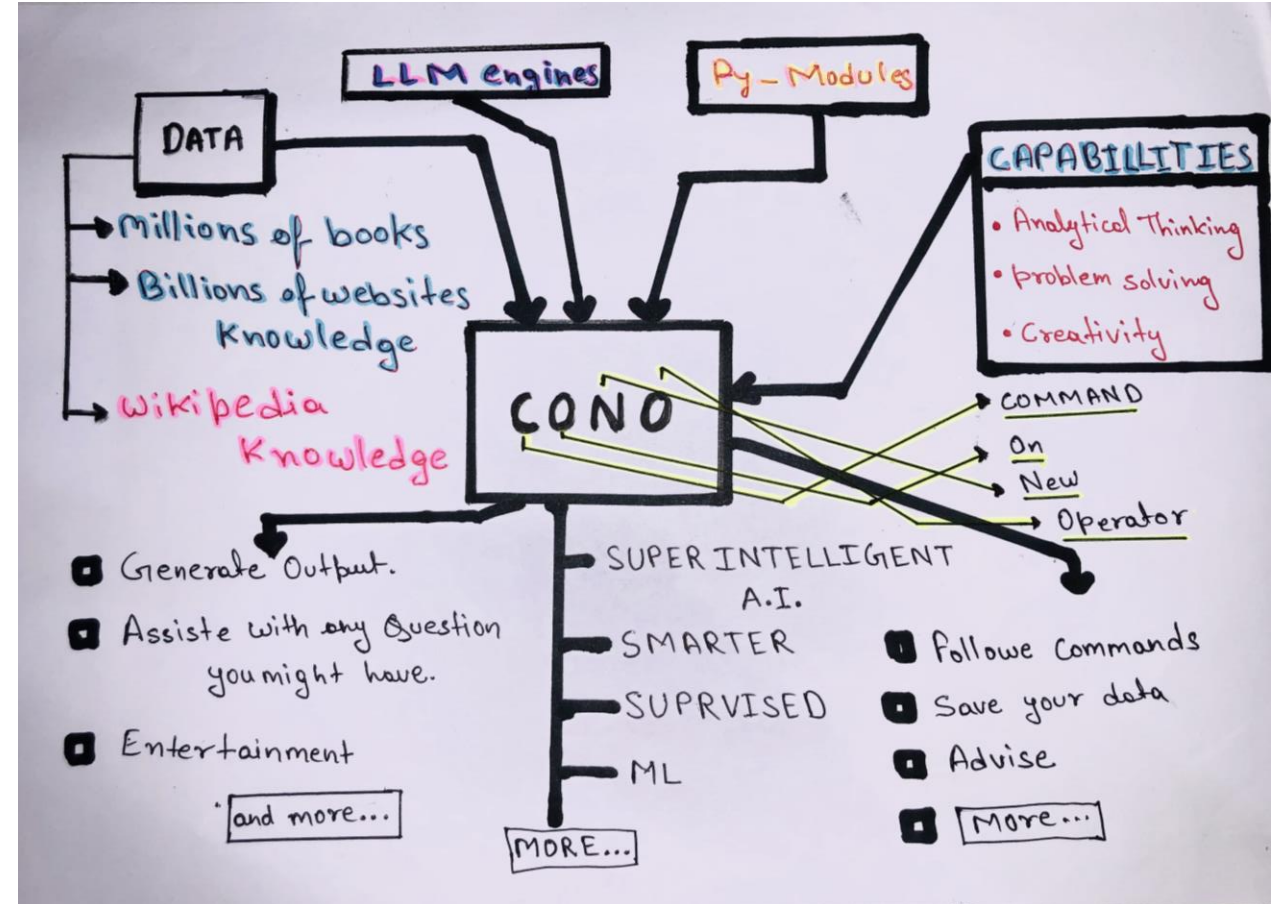 LLM engines
Py-Modules
DATA
CAPABILLITIES
• Analytical Thinking
• problem solving
• Creativity
Millions of books
Billions of websites
Knowledge
Wikipedia
Knowledge
CONO
COMMAND
On
New
Operator
Generate Output.
Assiste with any Question
you might have.
Entertainment
and more...
SUPER INTELLIGENT
A.I.
SMARTER
SUPRVISED
ML
MORE...
Followe Commands
Save your data
Advise
More...